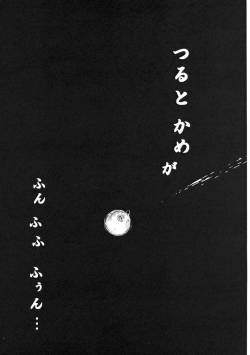 つるとかめが
ふん ふふ ふぅん…